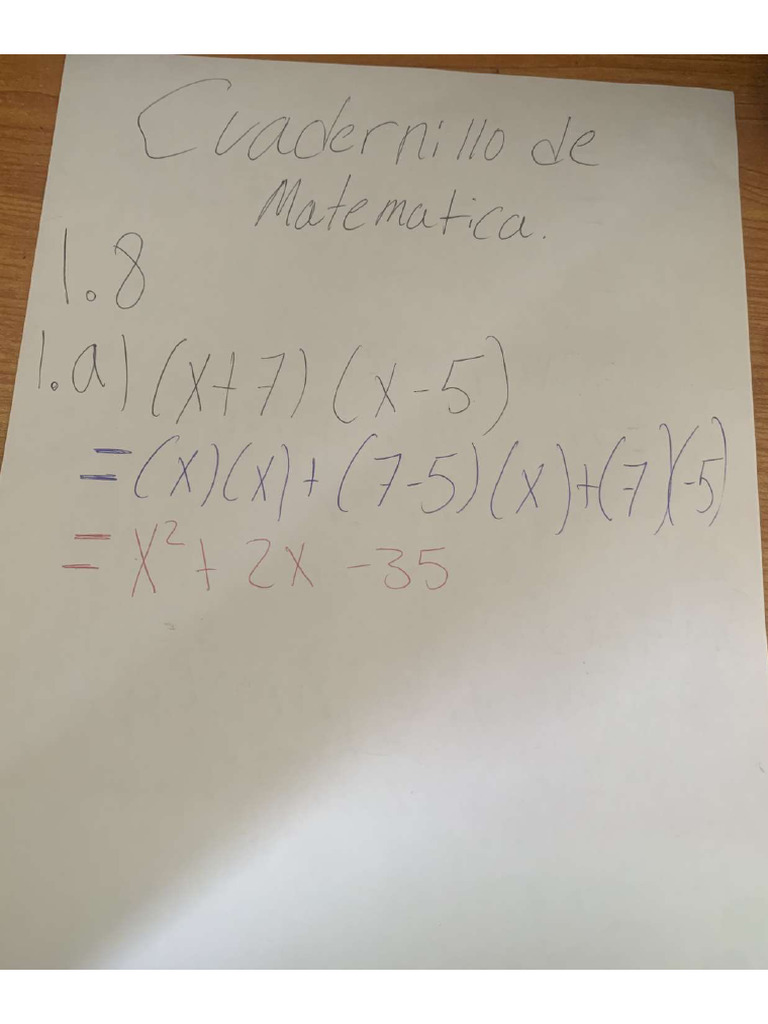 Cuadernillo de
Matematica.
1.8
1.a) (x+7) (x-5)
= (x)(x) + (7-5)(x) + (7)(-5)
= x² + 2x - 35